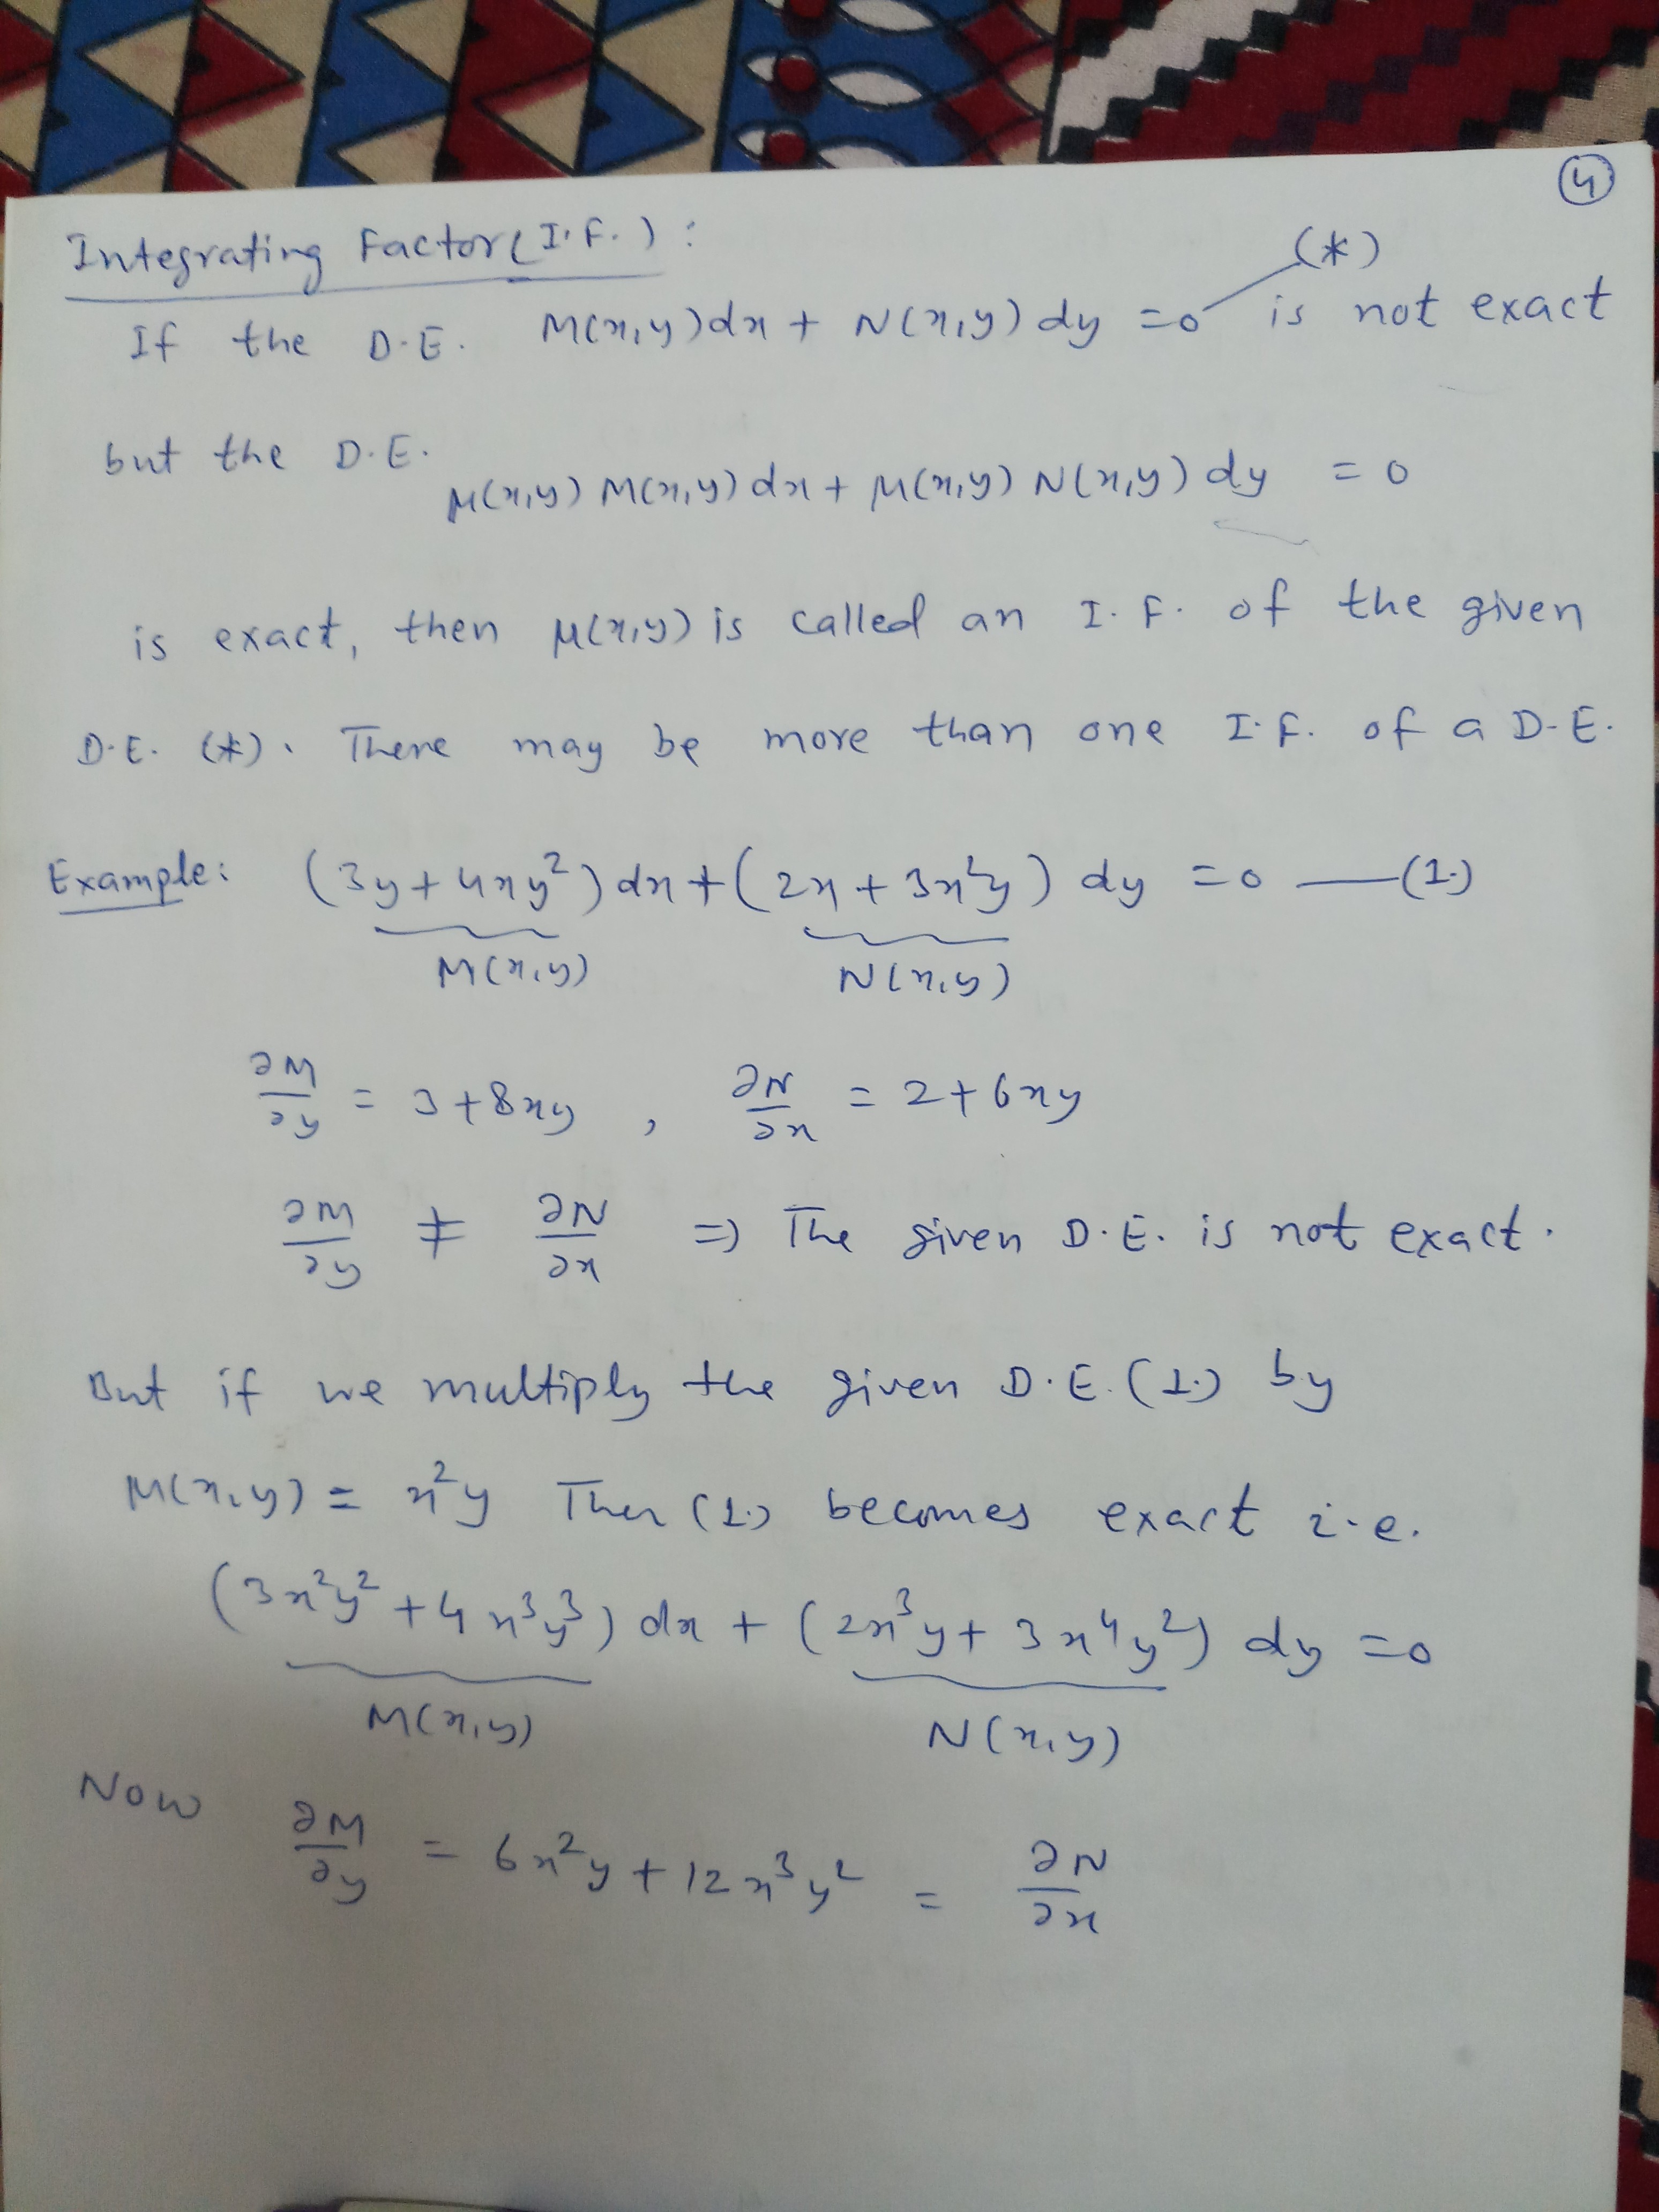 4
Integrating Factor (I.F.) :
(*)
If the D.E. M(x,y)dx + N(x,y)dy =0 is not exact
but the D.E.
μ(x,y) M(x,y)dx + μ(x,y) N(x,y) dy = 0
is exact, then μ(x,y) is called an I.F. of the given
D.E. (*). There may be more than one I.F. of a D.E.
Example: (3y + 4xy²) dx + (2x + 3x²y) dy =0 —(1.)
M(x,y) N(x,y)
∂M/∂y = 3+8xy , ∂N/∂x = 2+6xy
∂M/∂y ≠ ∂N/∂x => The given D.E. is not exact.
But if we multiply the given D.E. (1.) by
μ(x,y) = x²y Then (1.) becomes exact i.e.
(3x²y² + 4x³y³) dx + (2x³y + 3x⁴y²) dy =0
M(x,y) N(x,y)
Now ∂M/∂y = 6x²y + 12x³y² = ∂N/∂x